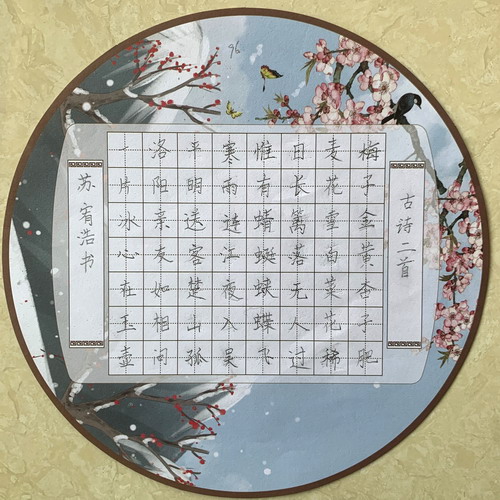 96
古诗二首
梅子金黄杏子肥
麦花雪白菜花稀
日长篱落无人过
惟有蜻蜓蛱蝶飞
寒雨连江夜入吴
平明送客楚山孤
洛阳亲友如相问
一片冰心在玉壶
苏宥浩书